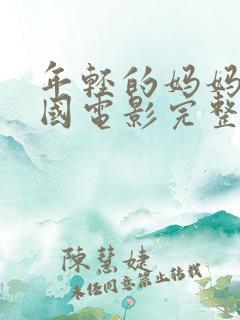 年轻的妈妈
國電影完整
陳慧婕
未经同意禁止转载